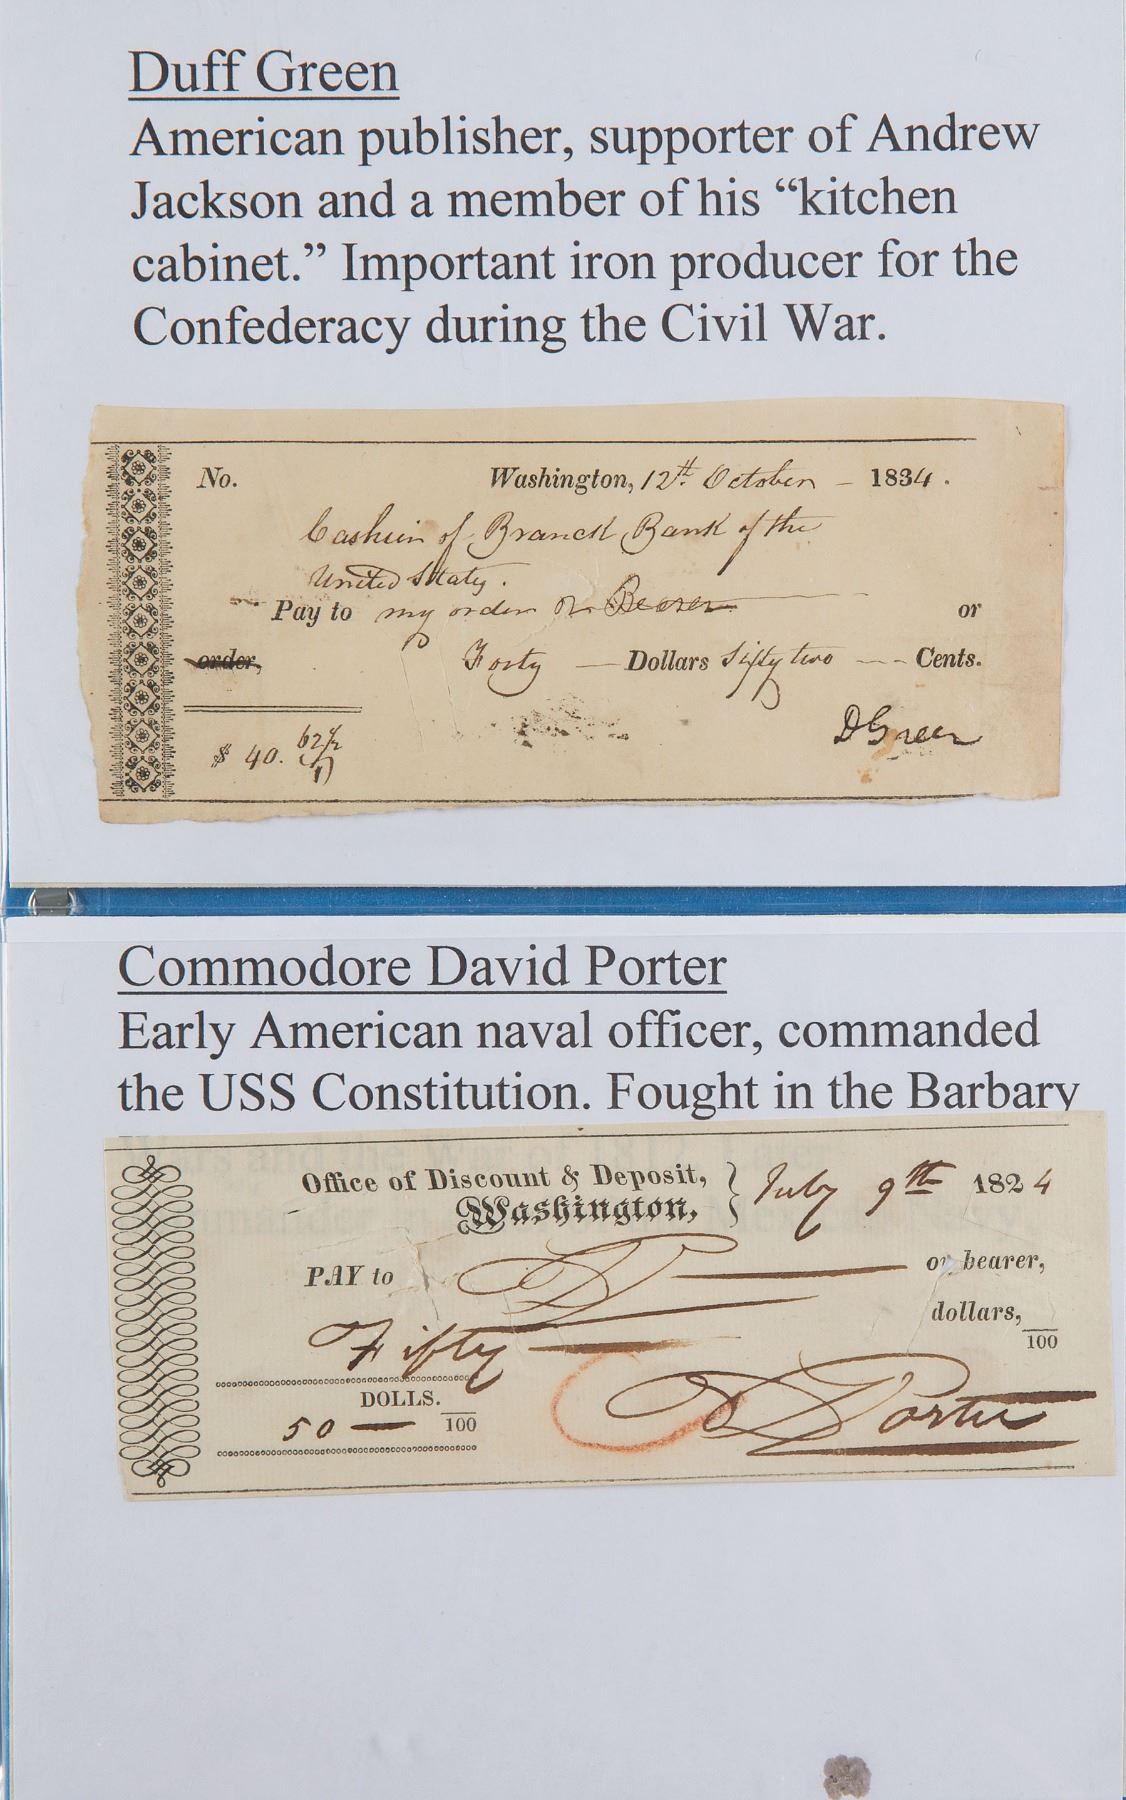 Duff Green
American publisher, supporter of Andrew
Jackson and a member of his “kitchen
cabinet.” Important iron producer for the
Confederacy during the Civil War.
No. Washington, 12th October - 1834.
Cashier of Branch Bank of the
United States.
Pay to my order or Bearer or
order, Forty — Dollars fifty two --- Cents.
$ 40. 62½
D Green
Commodore David Porter
Early American naval officer, commanded
the USS Constitution. Fought in the Barbary
Wars and the War of 1812. Later
Office of Discount & Deposit, July 9th 1824
Washington,
PAY to or bearer,
Fifty dollars, 100
DOLLS.
50 — 100
D Porter